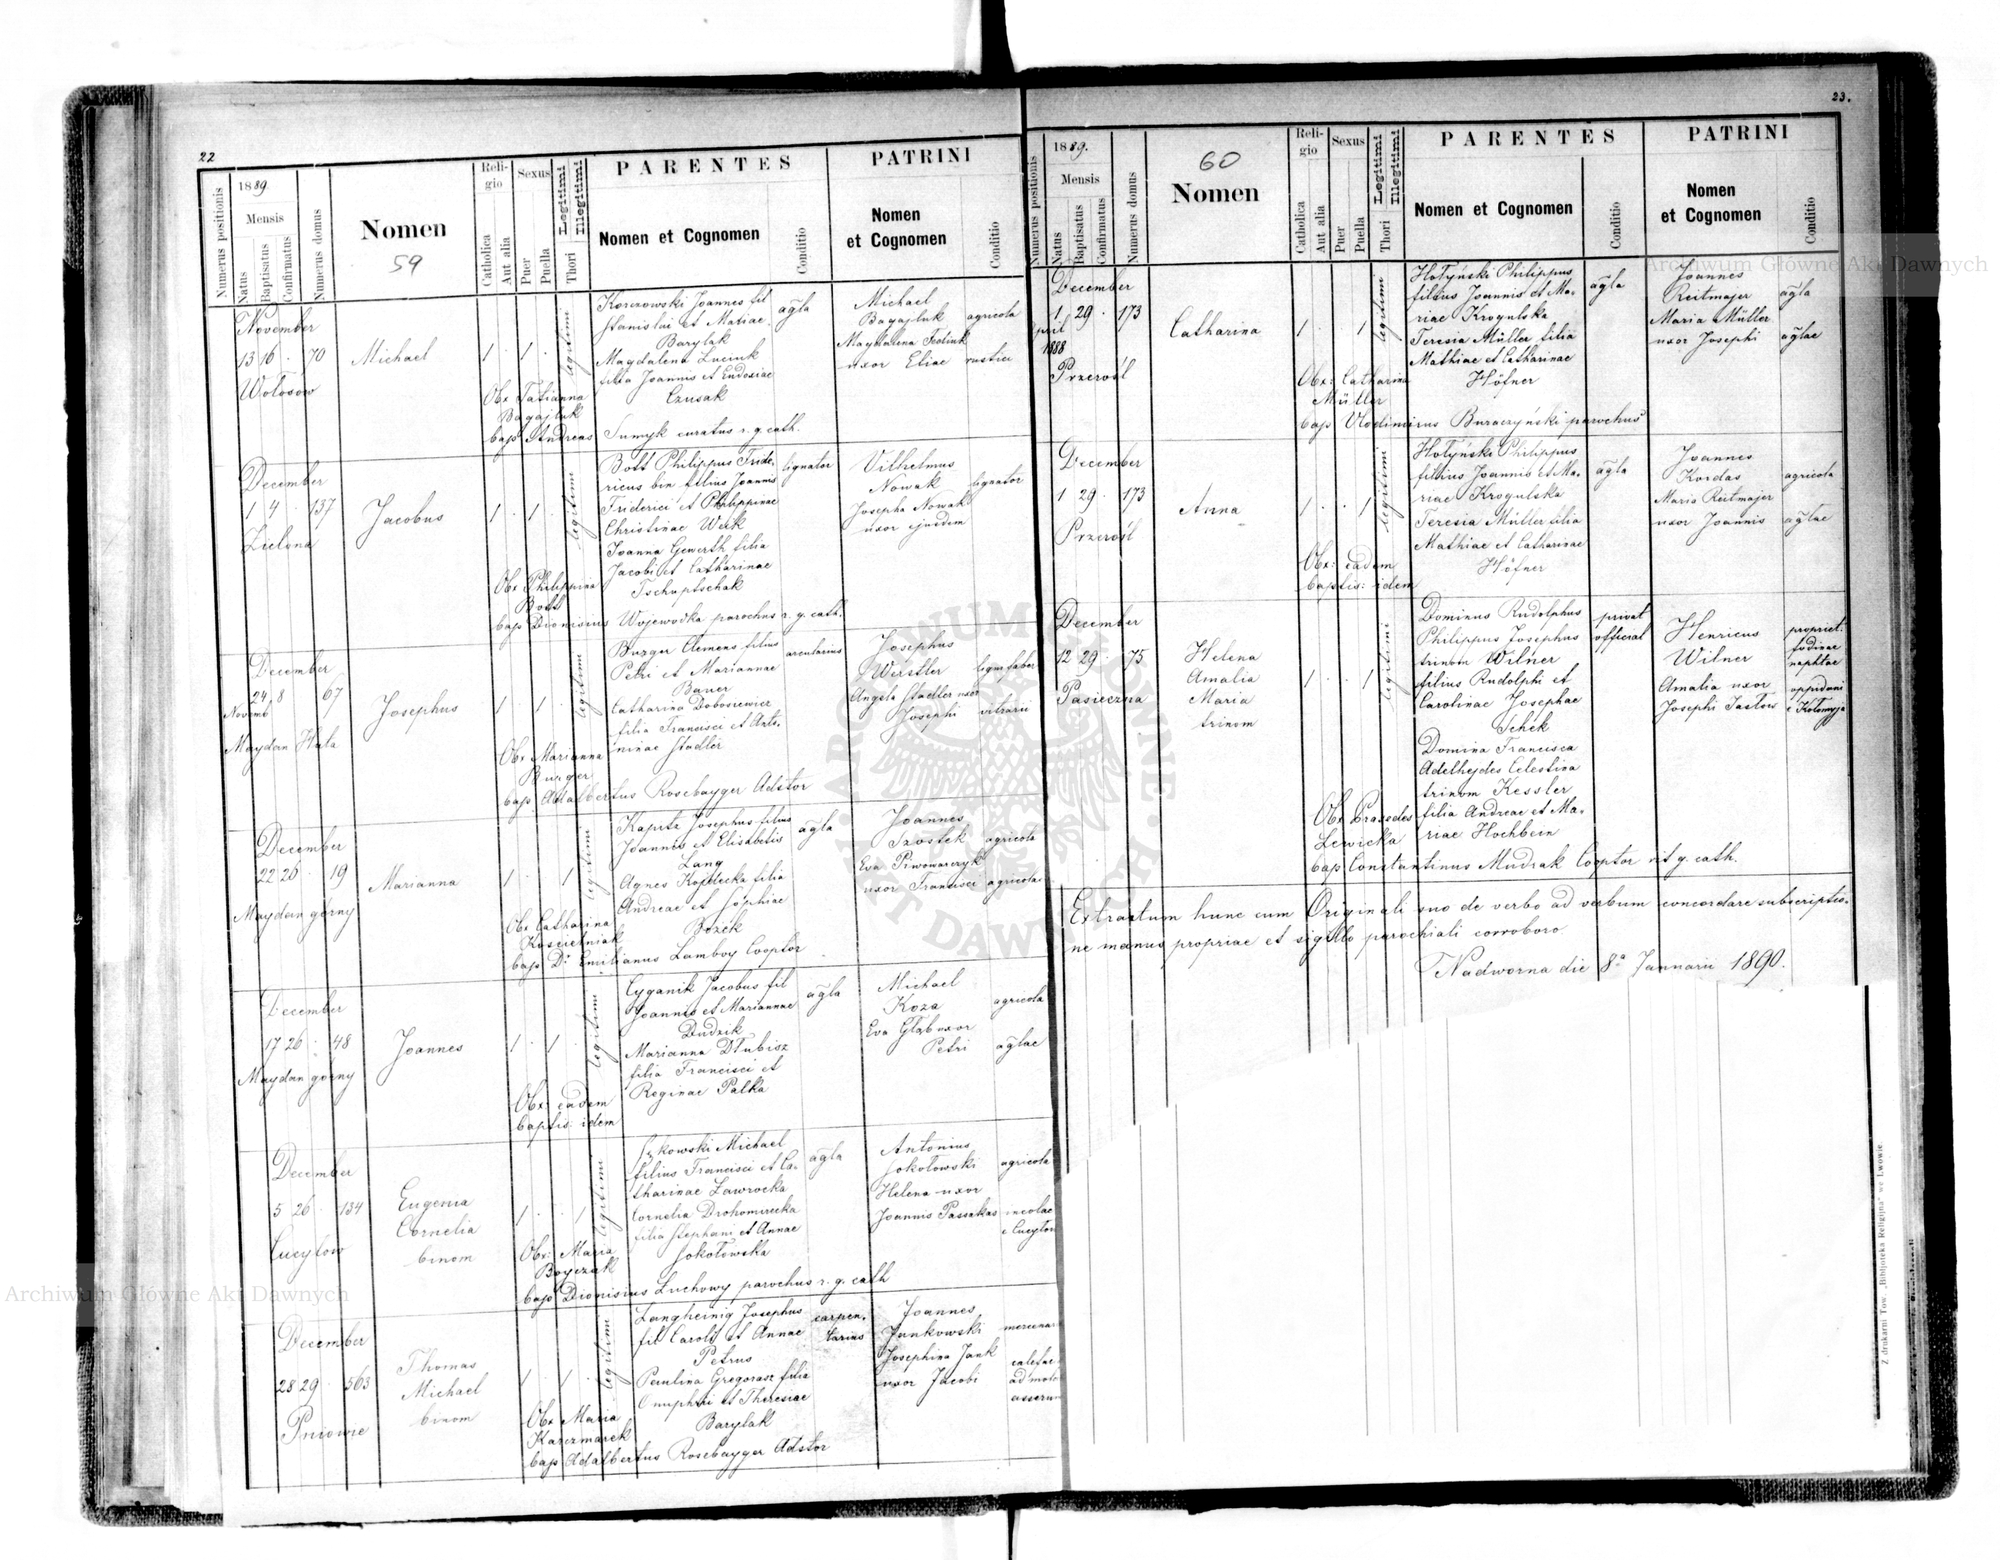 22
1889.
Numerus positionis
Mensis
Natus
Baptisatus
Confirmatus
Numerus domus
Nomen
59
Reli-
gio
Catholica
Aut alia
Sexus
Puer
Puella
Legitimi
Illegitimi
Thori
PARENTES
Nomen et Cognomen
Conditio
PATRINI
Nomen
et Cognomen
Conditio
November
13 16 · 70
Wołosów
Michael
1 1 ·
legitimi
Korczowski Joannes fil
Stanislai et Mariae
Barylak
Magdalena Luciuk
filia Joannis et Eudoxiae
Czusak
agla
Michael
Bagajluk
agricola
Magdalena
uxor Eliae rustici
Obx Tatianna
Bagajluk
bap Andreas Sumyk curatus r. g. cath.
December
1 4 · 137
Zielona
Jacobus
1 · 1 ·
legitimi
Bott Philippus Fride-
ricus bin filius Joannis
Friderici et Philippinae
Christinae Werk
Joanna Gewerth filia
Jacobi et Catharinae
Tschuptschak
lignator
Vilhelmus
Nowak
lignator
Josepha Nowak
uxor ejusdem
Obx Philippina
Bott
bap Dionisius Wojewodka parochus r. g. cath.
December
24 8 67
Novemb
Maydan Huta
Josephus
1 · 1 ·
legitimi
Burger Clemens filius
Petri et Mariannae
Bauer
Catharina Dobosiewicz
filia Francisci et Anto-
ninae Stadler
arcularius
Josephus
Werstler
lignifaber
Angela Stadler uxor
Josephi vitrarii
Obx Marianna
Burger
bap Adalbertus Rosebayger Adstor
December
22 26 · 19
Maydan górny
Marianna
1 · · 1
legitimi
Kapitz Josephus filius
Joannis et Elisabetis
Lang
Agnes Kopalecka filia
Andreae et Sophiae
Bożek
agla
Joannes
Szostek
agricola
Eva Piwowarczyk
uxor Francisci agricola
Obx Catharina
Kościelniak
bap Dr. Emilianus Lamboy Cooptor
December
17 26 · 48
Maydan górny
Joannes
1 · 1 ·
legitimi
Cyganik Jacobus fil
Joannis et Mariannae
Dudzik
Marianna Dłubisz
filia Francisci et
Reginae Palka
agla
Michael
Koza
agricola
Eva Głąb uxor
Petri aglae
Obx: eadem
baptis: idem
December
5 26 · 134
Lucytow
Eugenia
Cornelia
binom
1 · · 1
legitimi
Michael
filius Francisci et Ca-
tharinae Zawrocka
Cornelia Drohomirecka
filia Stephani et Annae
Sokołowska
agla
Antonius
Sokołowski
agricola
Helena uxor
Joannis Passakas incolae
e Lucytow
Obx: Maria
Boyczak
bap Dionisius Luchowy parochus r. g. cath
December
28 29 · 563
Pniowie
Thomas
Michael
binom
1 · 1 ·
legitimi
Langheinig Josephus
fil Caroli et Annae
Petrus
Paulina Gregorasz filia
Onuphrii et Theresiae
Barylak
carpen-
tarius
Joannes
Junkowski
Josephina Jank
uxor Jacobi
Obx Maria
Karczmarek
bap Adalbertus Rosebayger Adstor
23.
Numerus positionis
1889.
Mensis
Natus
Baptisatus
Confirmatus
Numerus domus
60
Nomen
Reli-
gio
Catholica
Aut alia
Sexus
Puer
Puella
Legitimi
Illegitimi
Thori
PARENTES
Nomen et Cognomen
Conditio
PATRINI
Nomen
et Cognomen
Conditio
December
1 29 · 173
April
1888
Przerośl
Catharina
1 · · 1
legitimi
Hołyński Philippus
filius Joannis et Ma-
riae Krogulska
Teresia Müller filia
Mathiae et Catharinae
Höfner
agla
Joannes
Reitmajer
agla
Maria Müller
uxor Josephi aglae
Obx: Catharina
Müller
bap Vlodimirus Buraczyński parochus
December
1 29 · 173
Przerośl
Anna
1 · · 1
legitimi
Hołyński Philippus
filius Joannis et Ma-
riae Krogulska
Teresia Müller filia
Mathiae et Catharinae
Höfner
agla
Joannes
Kordas
agricola
Maria Reitmajer
uxor Joannis aglae
Obx: eadem
baptis: idem
December
12 29 · 75
Pasieczna
Helena
Amalia
Maria
trinom
1 · · 1
legitimi
Dominus Rudolphus
Philippus Josephus
trinom Wilner
filius Rudolphi et
Carolinae Josephae
Schek
Domina Francisca
Adelhejdes Celestina
trinom Kessler
filia Andreae et Ma-
riae Hochbein
privat
official
Henricus
Wilner
propriet:
fodinae
naphtae
Amalia uxor
Josephi Sastow
oppidani
e Kołomyja
Obx Praxedes
Lewicka
bap Constantinus Mudrak Cooptor rit g. cath.
Extractum hunc cum Originali suo de verbo ad verbum concordare subscriptio-
ne manus propriae et sigillo parochiali corroboro
Nadworna die 8a Januarii 1890.
Z drukarni Tow. „Bibljoteka Religijna" we Lwowie.
Archiwum Główne Akt Dawnych
Archiwum Główne Akt Dawnych
ARCHIWUM GŁÓWNE · AKT DAWNYCH ·